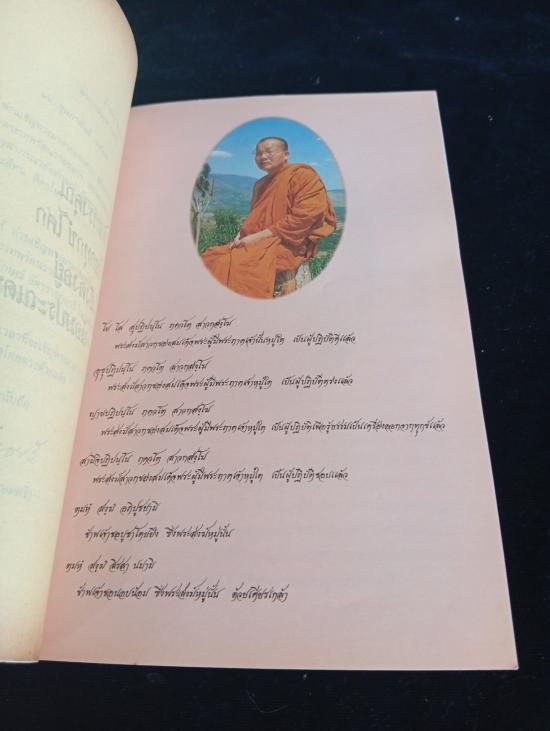 โย โส สุปฏิปนฺโน ภควโต สาวกสงฺโฆ
พระสงฆ์สาวกของสมเด็จพระผู้มีพระภาคเจ้านั้นหมู่ใด เป็นผู้ปฏิบัติดีแล้ว
อุชุปฏิปนฺโน ภควโต สาวกสงฺโฆ
พระสงฆ์สาวกของสมเด็จพระผู้มีพระภาคเจ้าหมู่ใด เป็นผู้ปฏิบัติตรงแล้ว
ญายปฏิปนฺโน ภควโต สาวกสงฺโฆ
พระสงฆ์สาวกของสมเด็จพระผู้มีพระภาคเจ้าหมู่ใด เป็นผู้ปฏิบัติเพื่อรู้ธรรมเป็นเครื่องออกจากทุกข์แล้ว
สามีจิปฏิปนฺโน ภควโต สาวกสงฺโฆ
พระสงฆ์สาวกของสมเด็จพระผู้มีพระภาคเจ้าหมู่ใด เป็นผู้ปฏิบัติชอบแล้ว
ตมหํ สงฺฆํ อภิปูชยามิ
ข้าพเจ้าขอบูชาโดยยิ่ง ซึ่งพระสงฆ์หมู่นั้น
ตมหํ สงฺฆํ สิรสา นมามิ
ข้าพเจ้าขอนอบน้อม ซึ่งพระสงฆ์หมู่นั้น ด้วยเศียรเกล้า